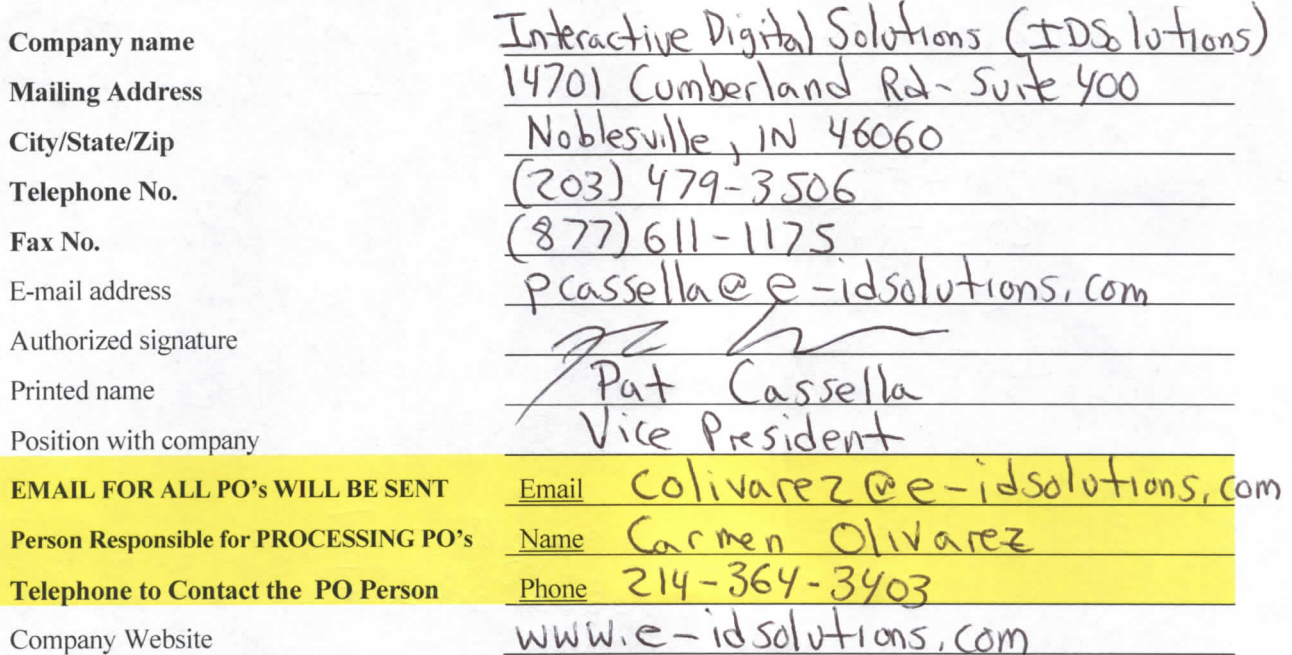 Company name Interactive Digital Solutions (IDSolutions)
Mailing Address 14701 Cumberland Rd - Suite 400
City/State/Zip Noblesville, IN 46060
Telephone No. (203) 479-3506
Fax No. (877) 611-1175
E-mail address pcassella@e-idsolutions.com
Authorized signature
Printed name Pat Cassella
Position with company Vice President
EMAIL FOR ALL PO's WILL BE SENT Email colivarez@e-idsolutions.com
Person Responsible for PROCESSING PO's Name Carmen Olivarez
Telephone to Contact the PO Person Phone 214-364-3403
Company Website www.e-idsolutions.com